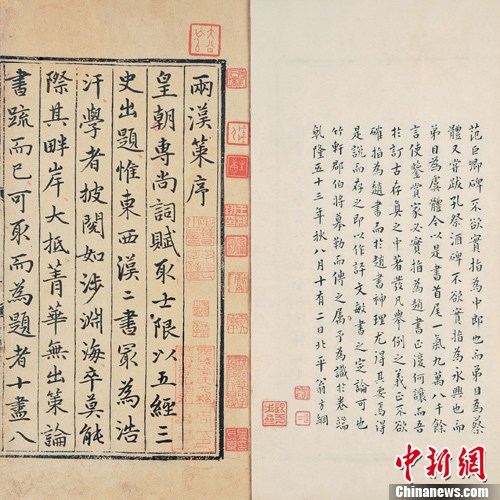 范巨卿碑不欲實指為也而弟目為蔡
體又嘗跋孔祭酒碑不欲實指為永興也而
弟目為虞體今以是書首尾一氣九萬八千餘
言使鑒賞家必實指為趙書正復何讓而吾
於訂古存真之中著發凡舉例之義正不欲
確指為趙書而於趙書神理尤得其妥焉得
是說而存之即以作評文敏書之定論可也
竹軒郡伯將摹勒而傳之屬予為識於卷端
乾隆五十三年秋八月十有二日北平翁方綱
兩漢策序
皇朝專尚詞賦取士限以五經三
史出題惟東西漢二書冣為浩
汗學者披閱如涉淵海卒莫能
際其畔岸大抵菁華無出策論
書疏而已可取而為題者十盡八
中新網
Chinanews.com